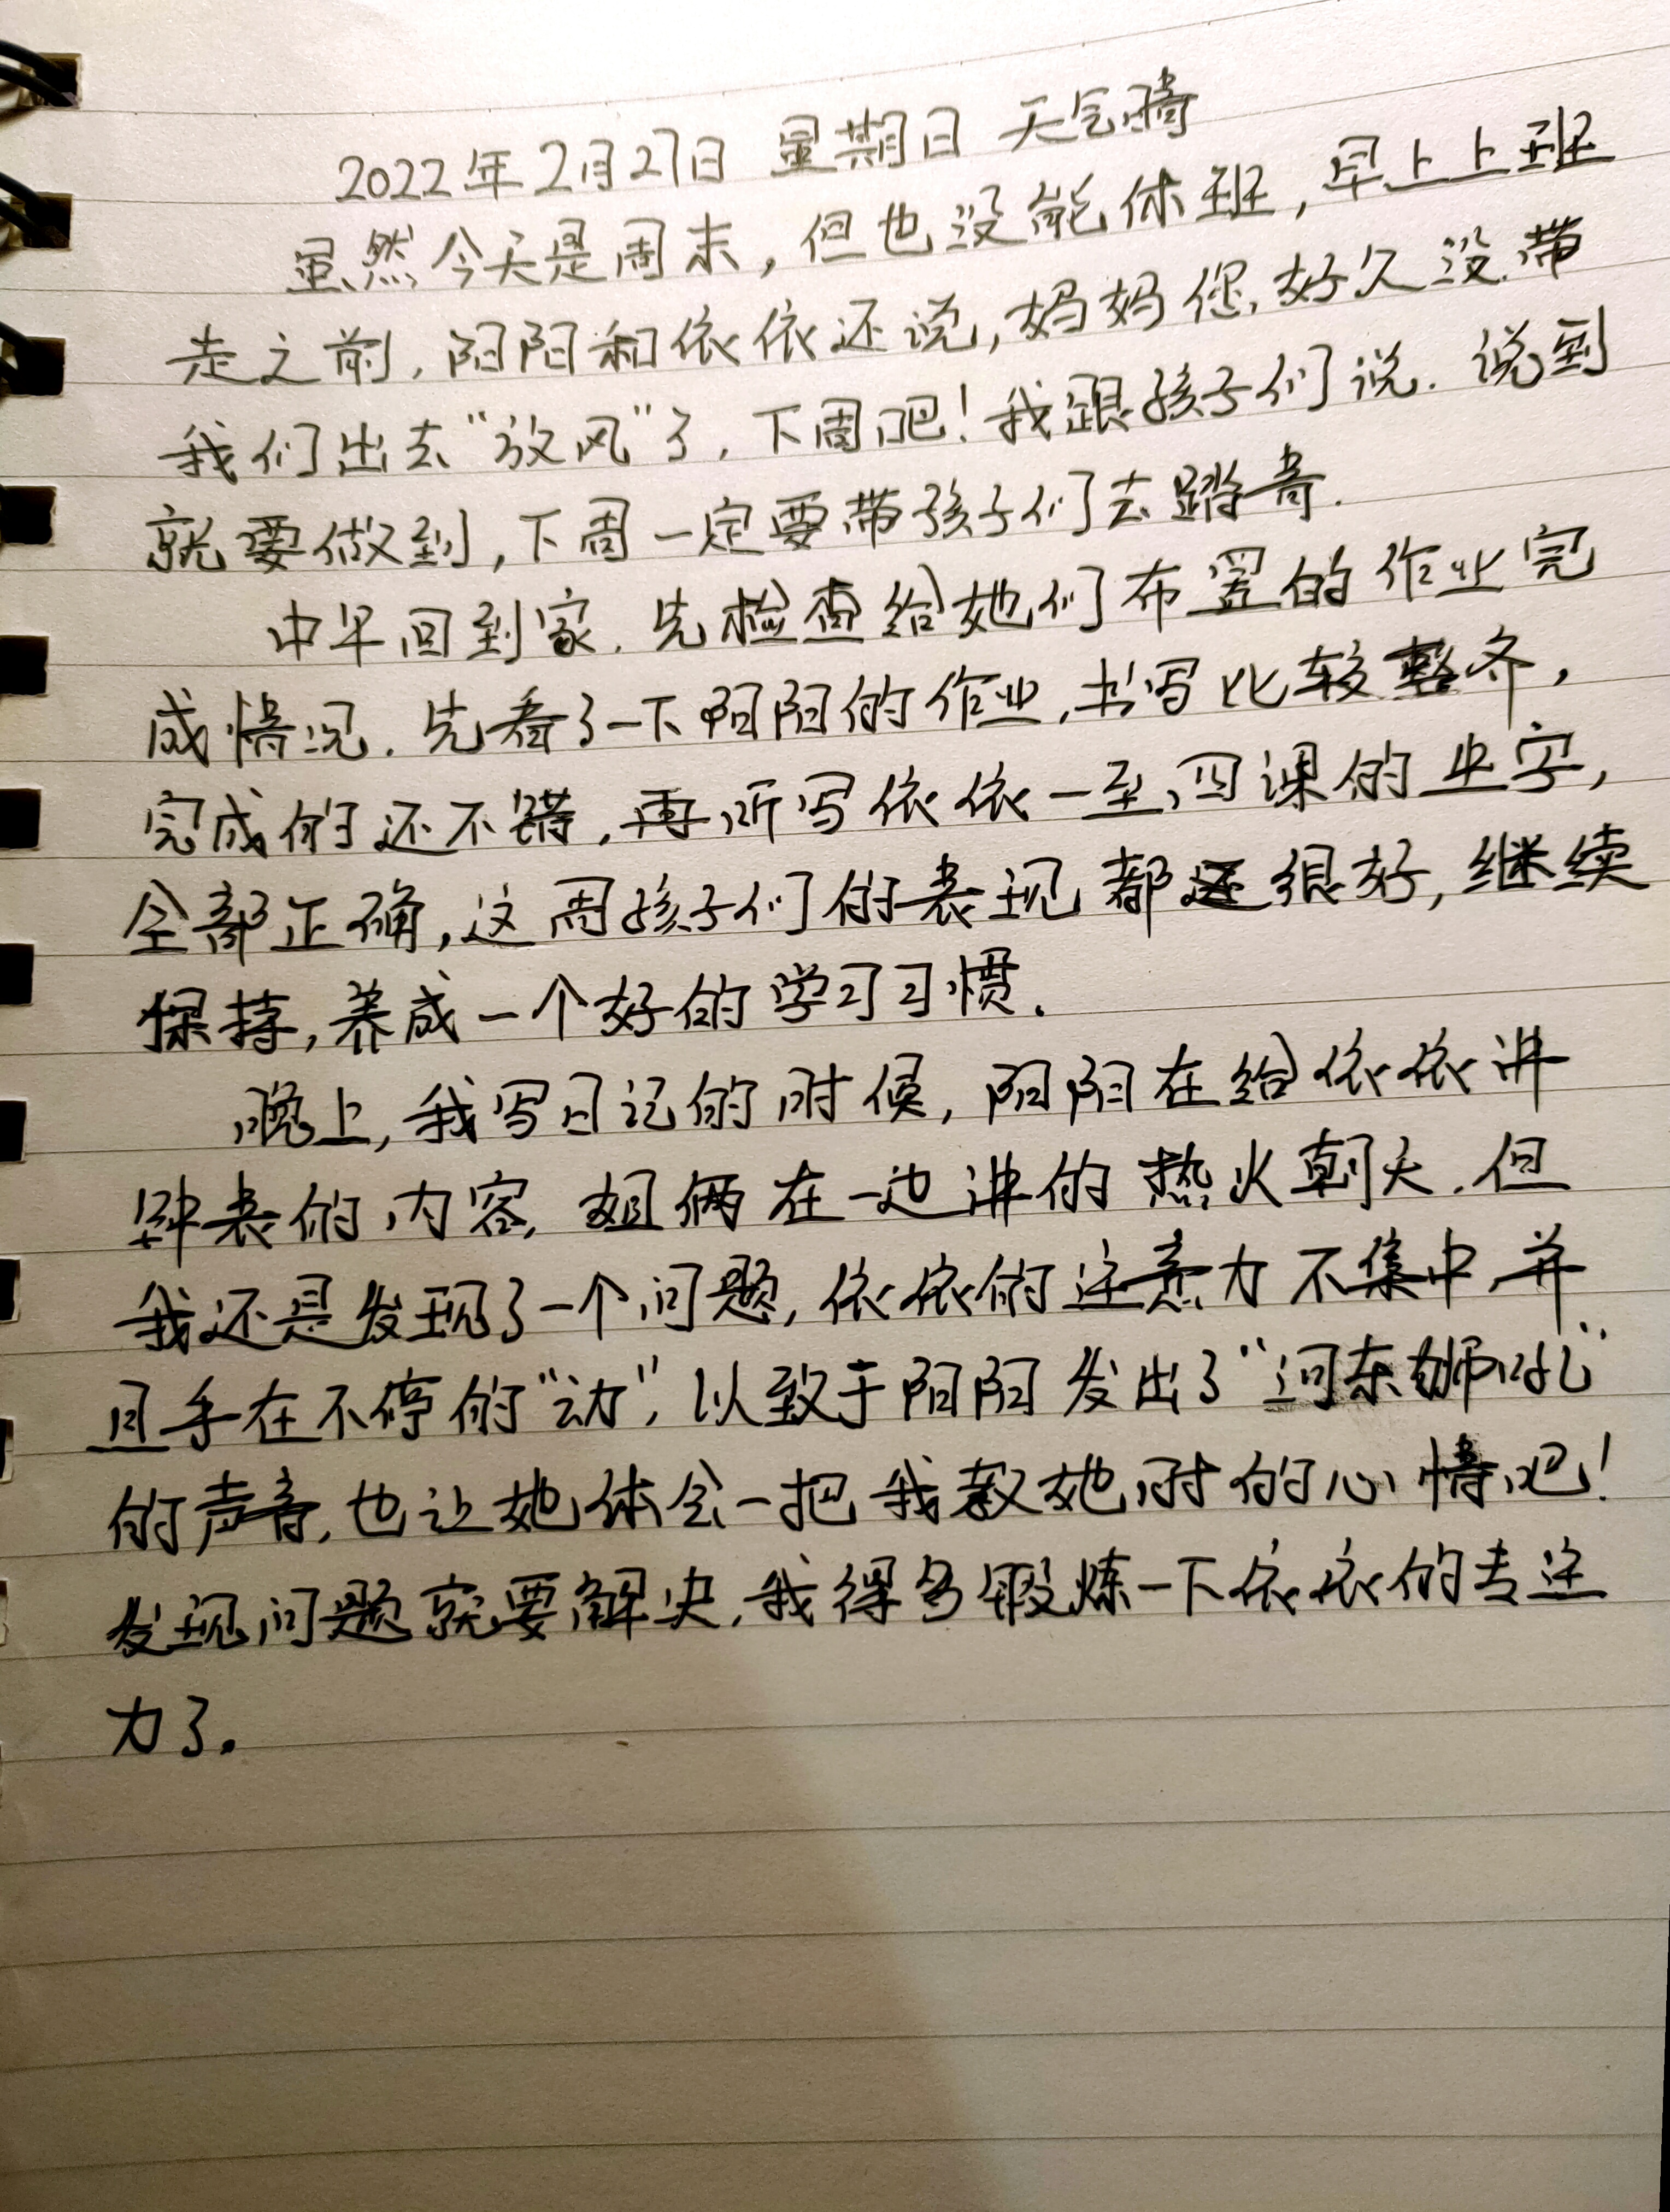 2022年2月27日 星期日 天气晴
虽然今天是周末，但也没能休班，早上上班
走之前，阳阳和依依还说，妈妈您好久没带
我们出去“放风”了，下周吧！我跟孩子们说．说到
就要做到，下周一定要带孩子们去踏青．
中午回到家．先检查给她们布置的作业完
成情况．先看了一下阳阳的作业，书写比较整齐，
完成的还不错，再听写依依一至四课的生字，
全部正确，这周孩子们的表现都还很好，继续
保持，养成一个好的学习习惯．
晚上，我写日记的时候，阳阳在给依依讲
钟表的内容，姐俩在一边讲的热火朝天．但
我还是发现了一个问题，依依的注意力不集中，并
且手在不停的“动”，以致于阳阳发出了“河东狮吼”
的声音，也让她体会一把我教她时的心情吧！
发现问题就要解决，我得多锻炼一下依依的专注
力了。